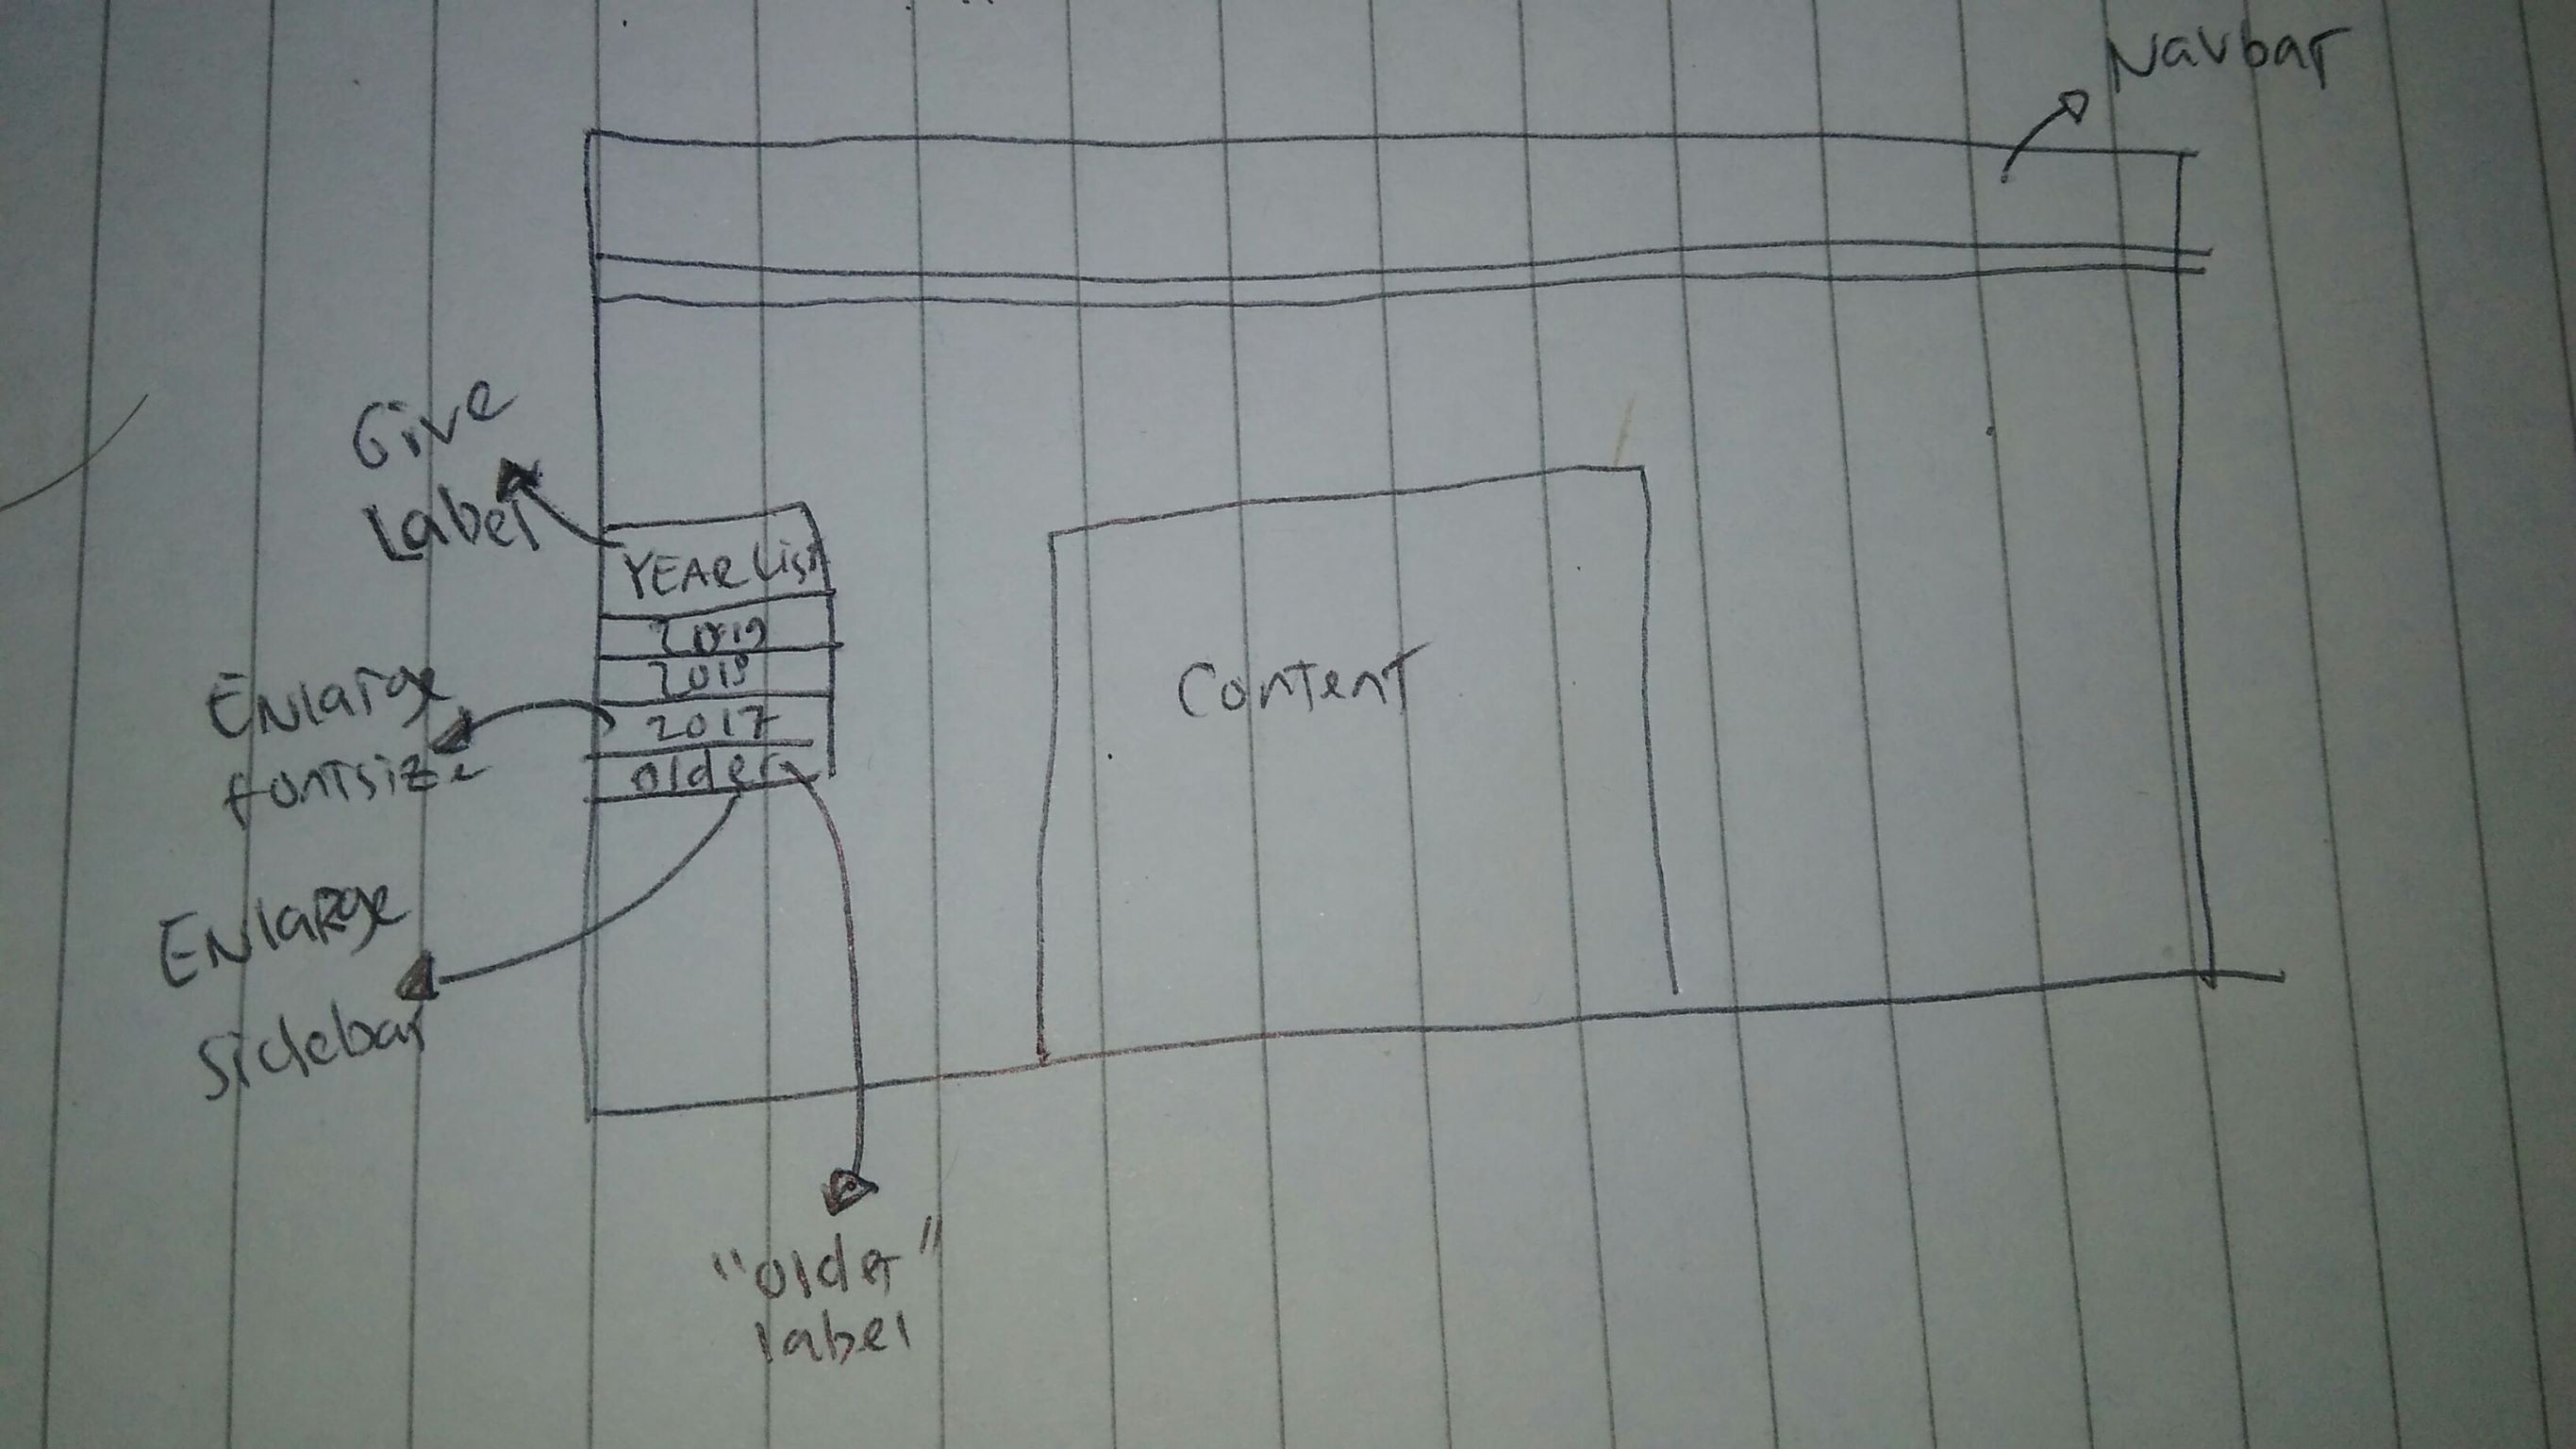 Navbar
Give
Label
YEAR List
2019
2018
2017
older
Enlarge
fontsize
Enlarge
sidebar
Content
"older"
label